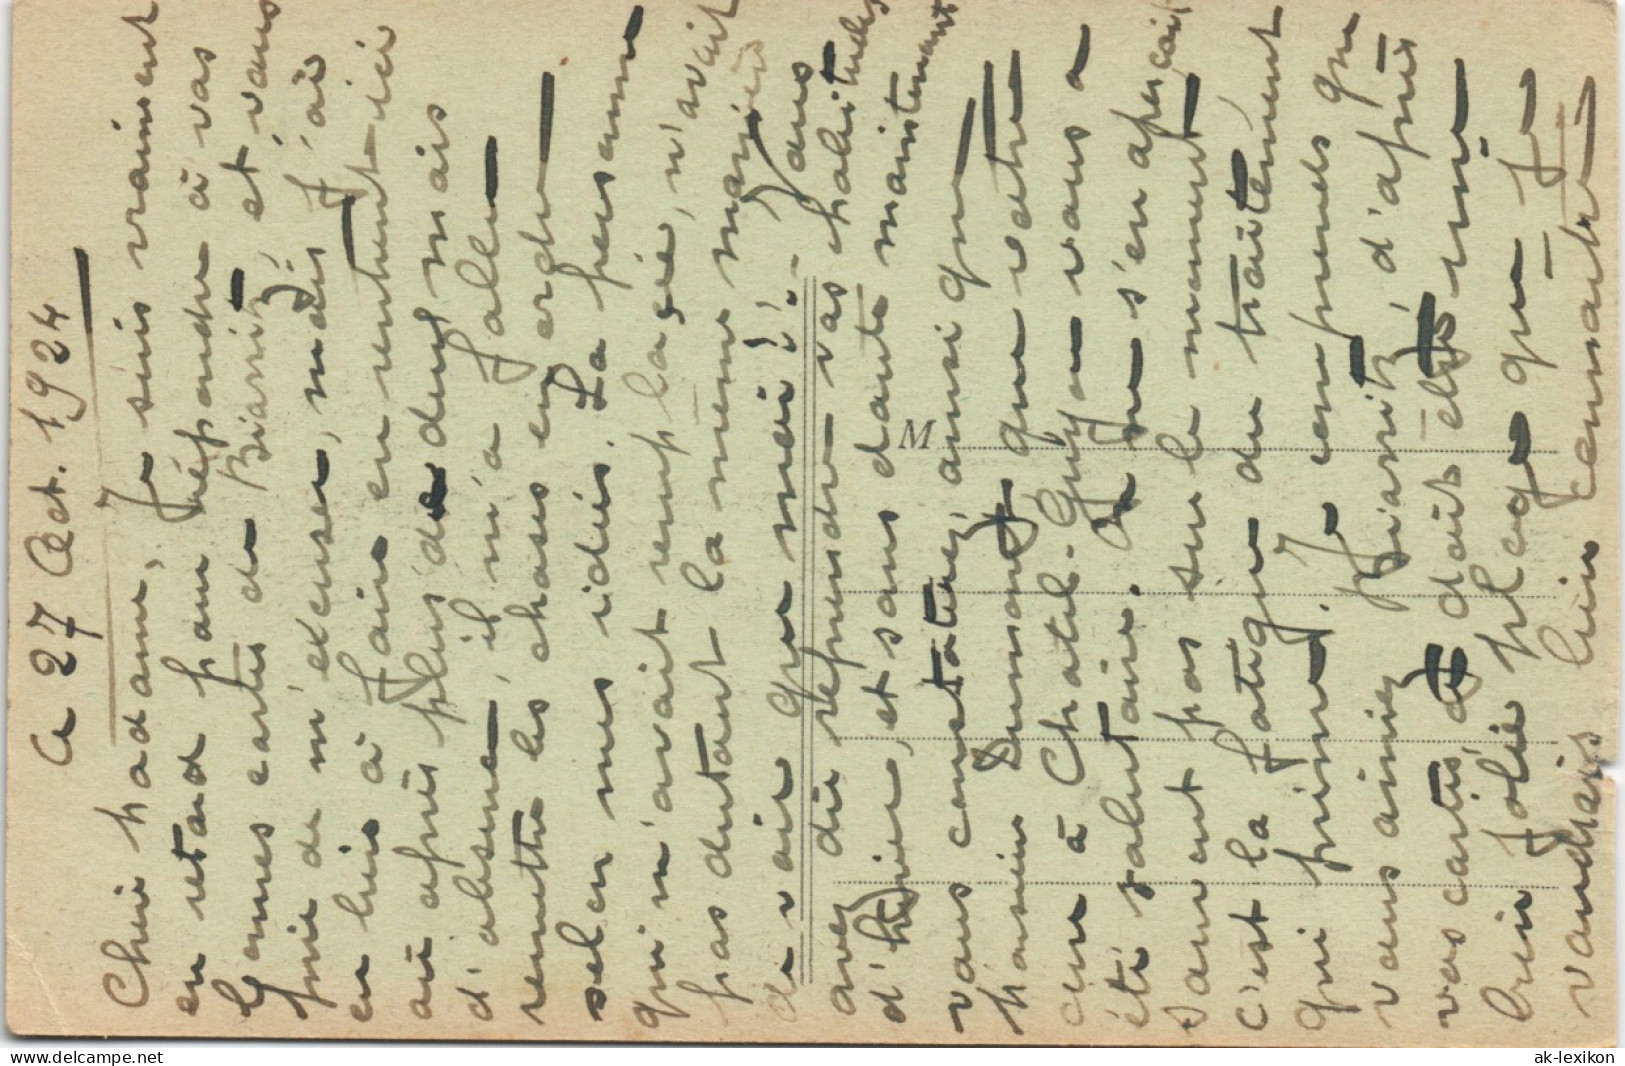 a 27 Oct. 1924
Chère Madame, Je suis vraiment
en retard pour répondre à vos
bonnes cartes de Biarritz, et vous
prie de m'excuser, mais j'ai
eu bien à faire en rentrant ici
où après plus de deux mois
d'absence, il m'a fallu
remettre les choses en ordre
selon mes idées. La personne
qui m'avait remplacée, n'avait
pas dutout la même manière
de voir que moi!! - Vous
avez dû reprendre vos habitudes
d'hiver, et sans doute maintenant
vous constatez, ainsi que
Monsieur Dumont que votre
cure à Chatel-Guyon vous a
été salutaire. On ne s'en aperçoit
souvent pas sur le moment,
c'est la fatigue du traitement
qui prime. Je comprends que
vous aimiez Biarritz, d'après
vos cartes, ce doit être une
bien jolie plage que je
voudrais bien connaître
M
www.delcampe.net
ak-lexikon